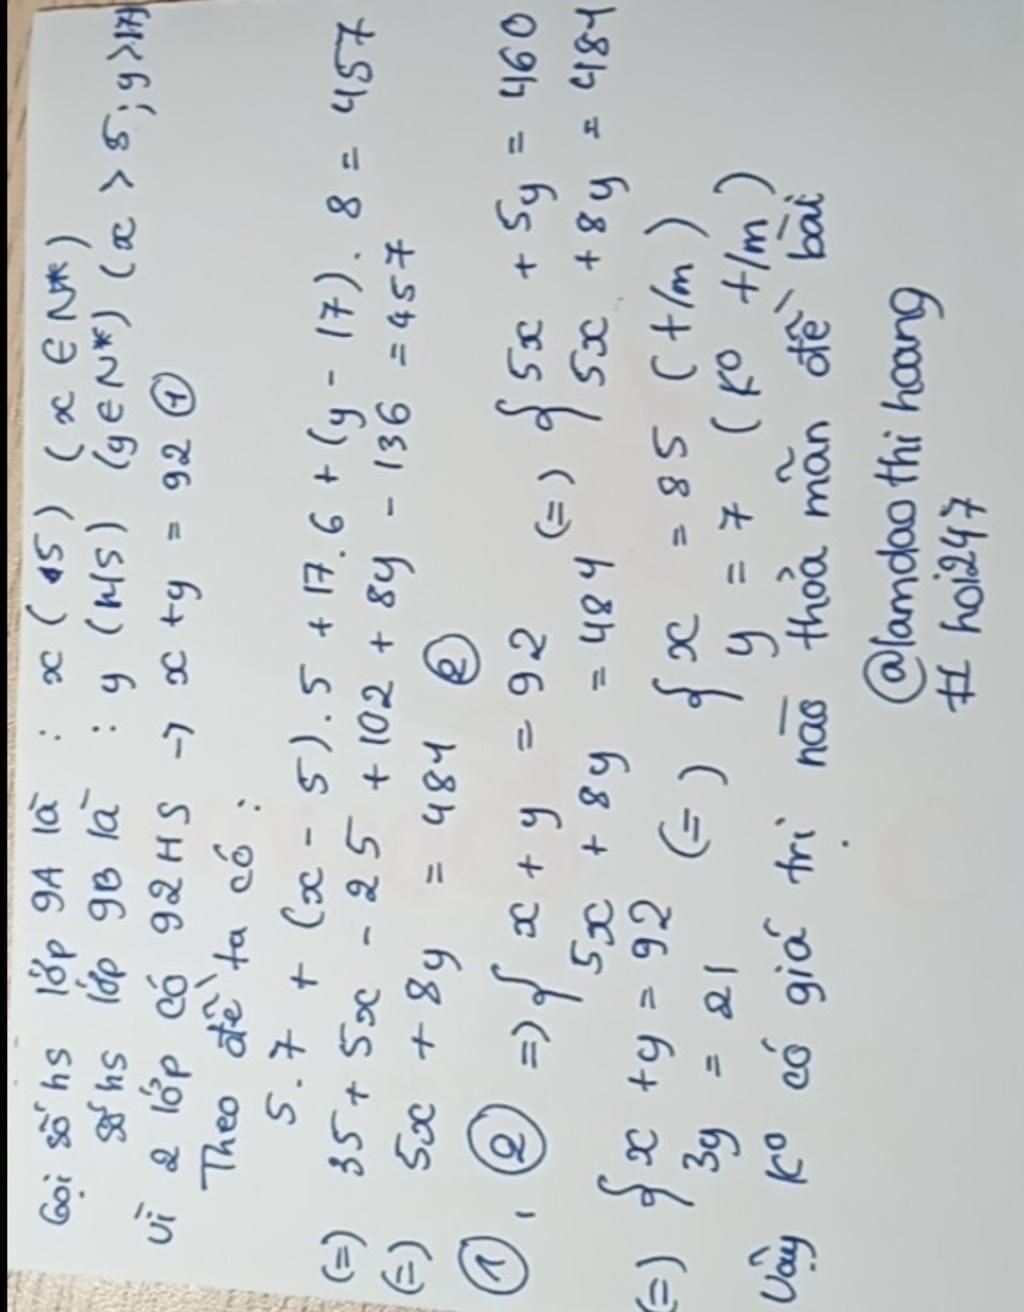 Gọi số hs lớp 9A là : x (HS) (x ∈ N*)
số hs lớp 9B là : y (HS) (y ∈ N*) (x > 5 ; y > 17)
Vì 2 lớp có 92 HS → x + y = 92 ①
Theo đề ta có :
5.7 + (x - 5).5 + 17.6 + (y - 17).8 = 457
(=) 35 + 5x - 25 + 102 + 8y - 136 = 457
(=) 5x + 8y = 484 ②
①, ② =) { x + y = 92 (=) { 5x + 5y = 460
5x + 8y = 484 5x + 8y = 484
(=) { x + y = 92 (=) { x = 85 (t/m)
3y = 21 y = 7 (K° t/m)
Vậy K° có giá trị nào thỏa mãn đề bài
@lamdaothihoang
# hoi247